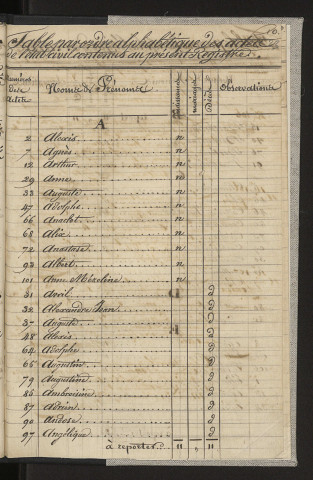 Table par ordre alphabétique des actes
de l'état civil contenus au présent Registre.
Numéros des Actes Noms & Prénoms naissances mariages Décès Observations
A
2 Alexis n
7 Agnès n
12 Arthur n
29 Anne n
33 Auguste n
47 Adolphe n
66 Anaclet n
68 Alix n
72 Anastase n
93 Albert n
101 Anne Mézeline n
31 Avril d
32 Alexandre Jean d
37 Auguste d
48 Alexis d
64 Adolphe d
65 Augustin d
79 Augustine d
85 Ambroisine d
87 Adrien d
90 d
97 Angélique d
à reporter 11 " 11